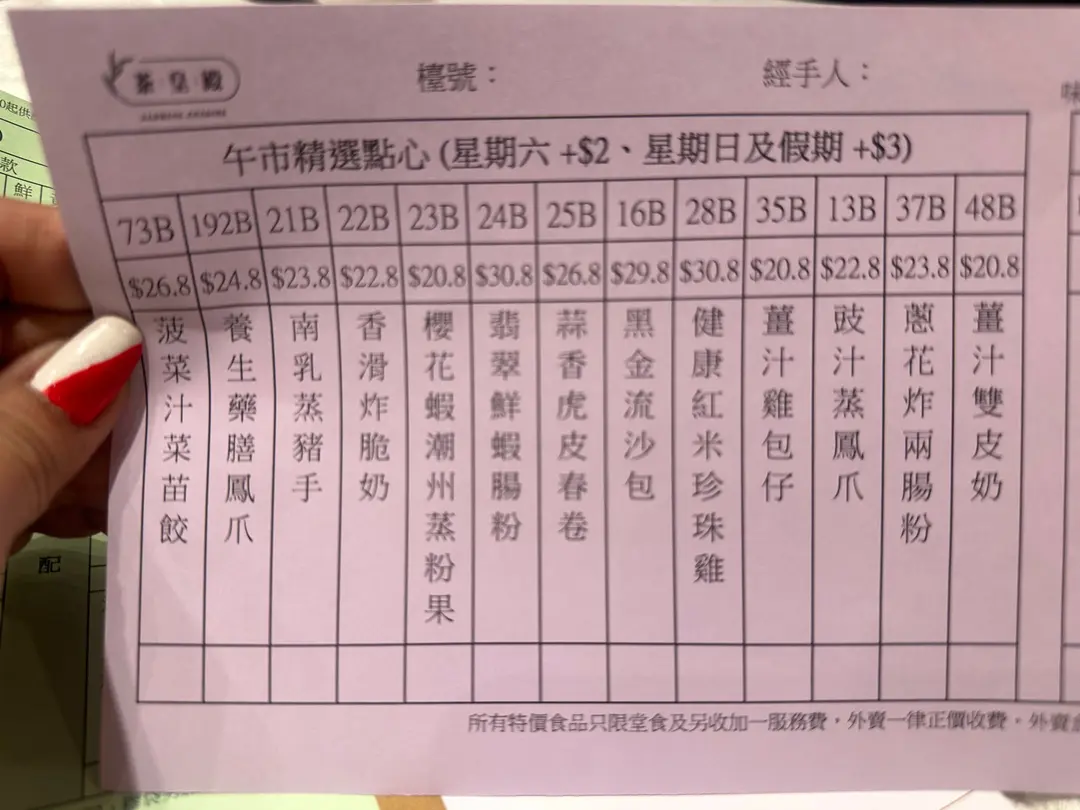 茶皇殿
檯號：
經手人：
午市精選點心 (星期六 +$2、星期日及假期 +$3)
73B 192B 21B 22B 23B 24B 25B 16B 28B 35B 13B 37B 48B
$26.8 $24.8 $23.8 $22.8 $20.8 $30.8 $26.8 $29.8 $30.8 $20.8 $22.8 $23.8 $20.8
菠菜汁菜苗餃
養生藥膳鳳爪
南乳蒸豬手
香滑炸脆奶
櫻花蝦潮州蒸粉果
翡翠鮮蝦腸粉
蒜香虎皮春卷
黑金流沙包
健康紅米珍珠雞
薑汁雞包仔
豉汁蒸鳳爪
蔥花炸兩腸粉
薑汁雙皮奶
所有特價食品只限堂食及另收加一服務費，外賣一律正價收費。外賣
0起供
款
鮮
配
味